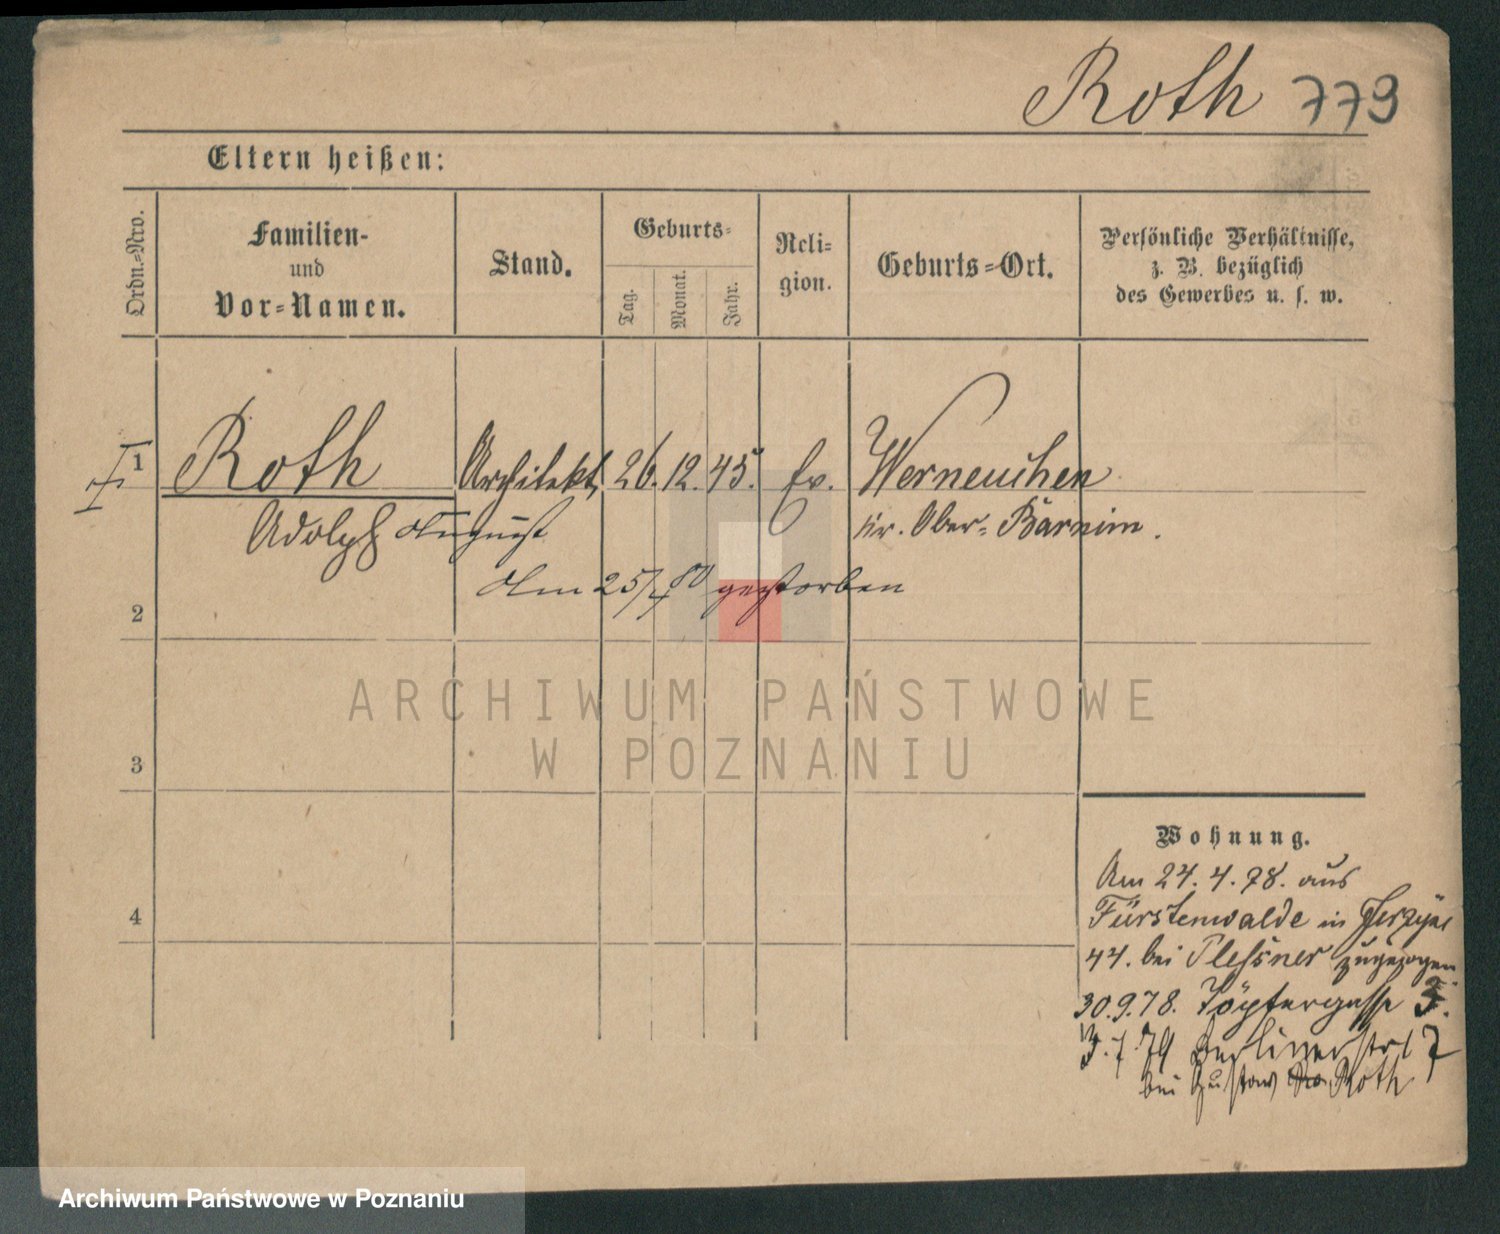 Roth 779
Eltern heißen:
Ordn.-Nro.
Familien-
und
Vor-Namen.
Stand.
Geburts-
Tag.
Monat.
Jahr.
Reli-
gion.
Geburts-Ort.
Persönliche Verhältnisse,
z. B. bezüglich
des Gewerbes u. s. w.
1 Roth Architekt 26. 12. 45. Ev. Werneuchen
Adolph August Kr. Ober-Barnim.
Am 25/7 80 gestorben
2
ARCHIWUM PAŃSTWOWE
W POZNANIU
3
4
Wohnung.
Am 24. 4. 78. aus
Fürstenwalde in
44. bei Plessner zugezogen
30.9.78. Töpfergasse
7 79 Berlinerstr 7
bei Gustav Roth
Archiwum Państwowe w Poznaniu